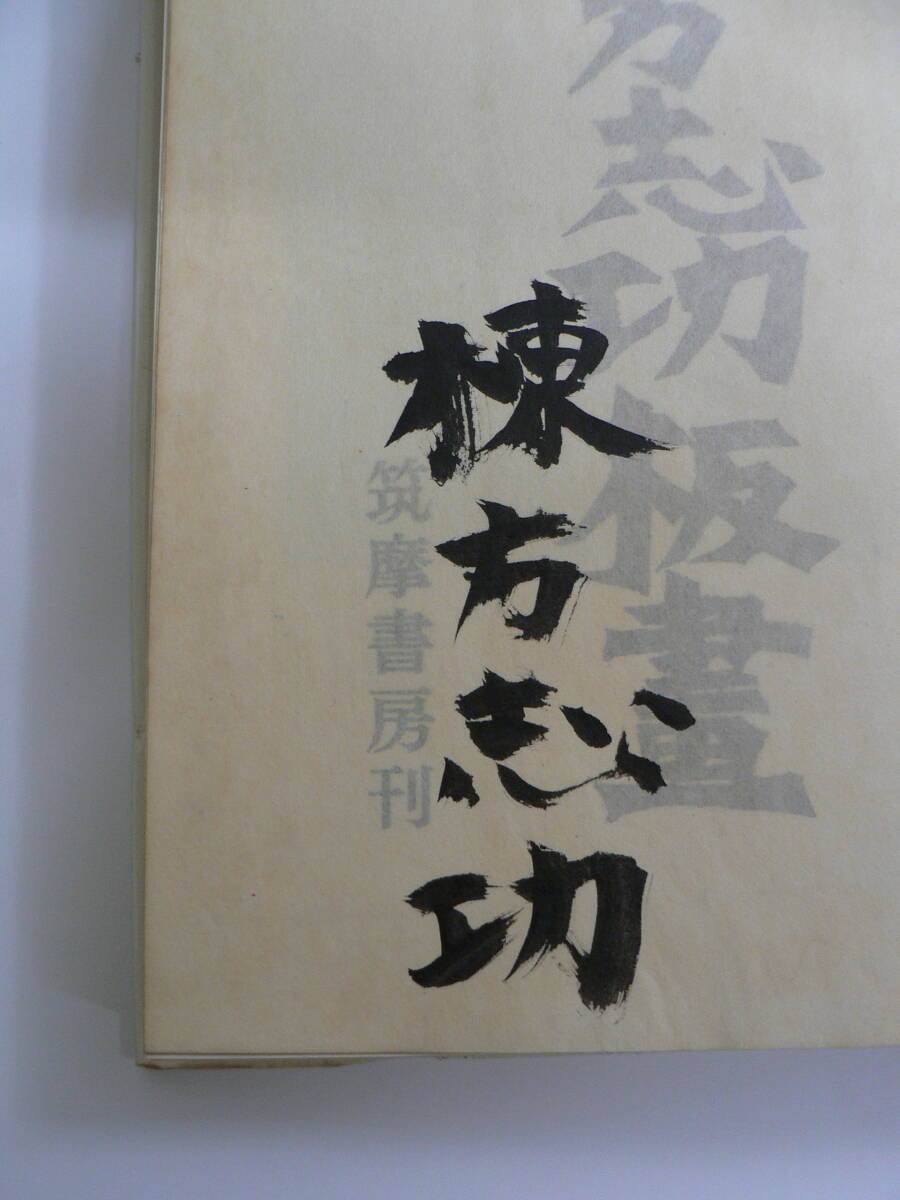 方志功板畫
棟方志功
筑摩書房刊